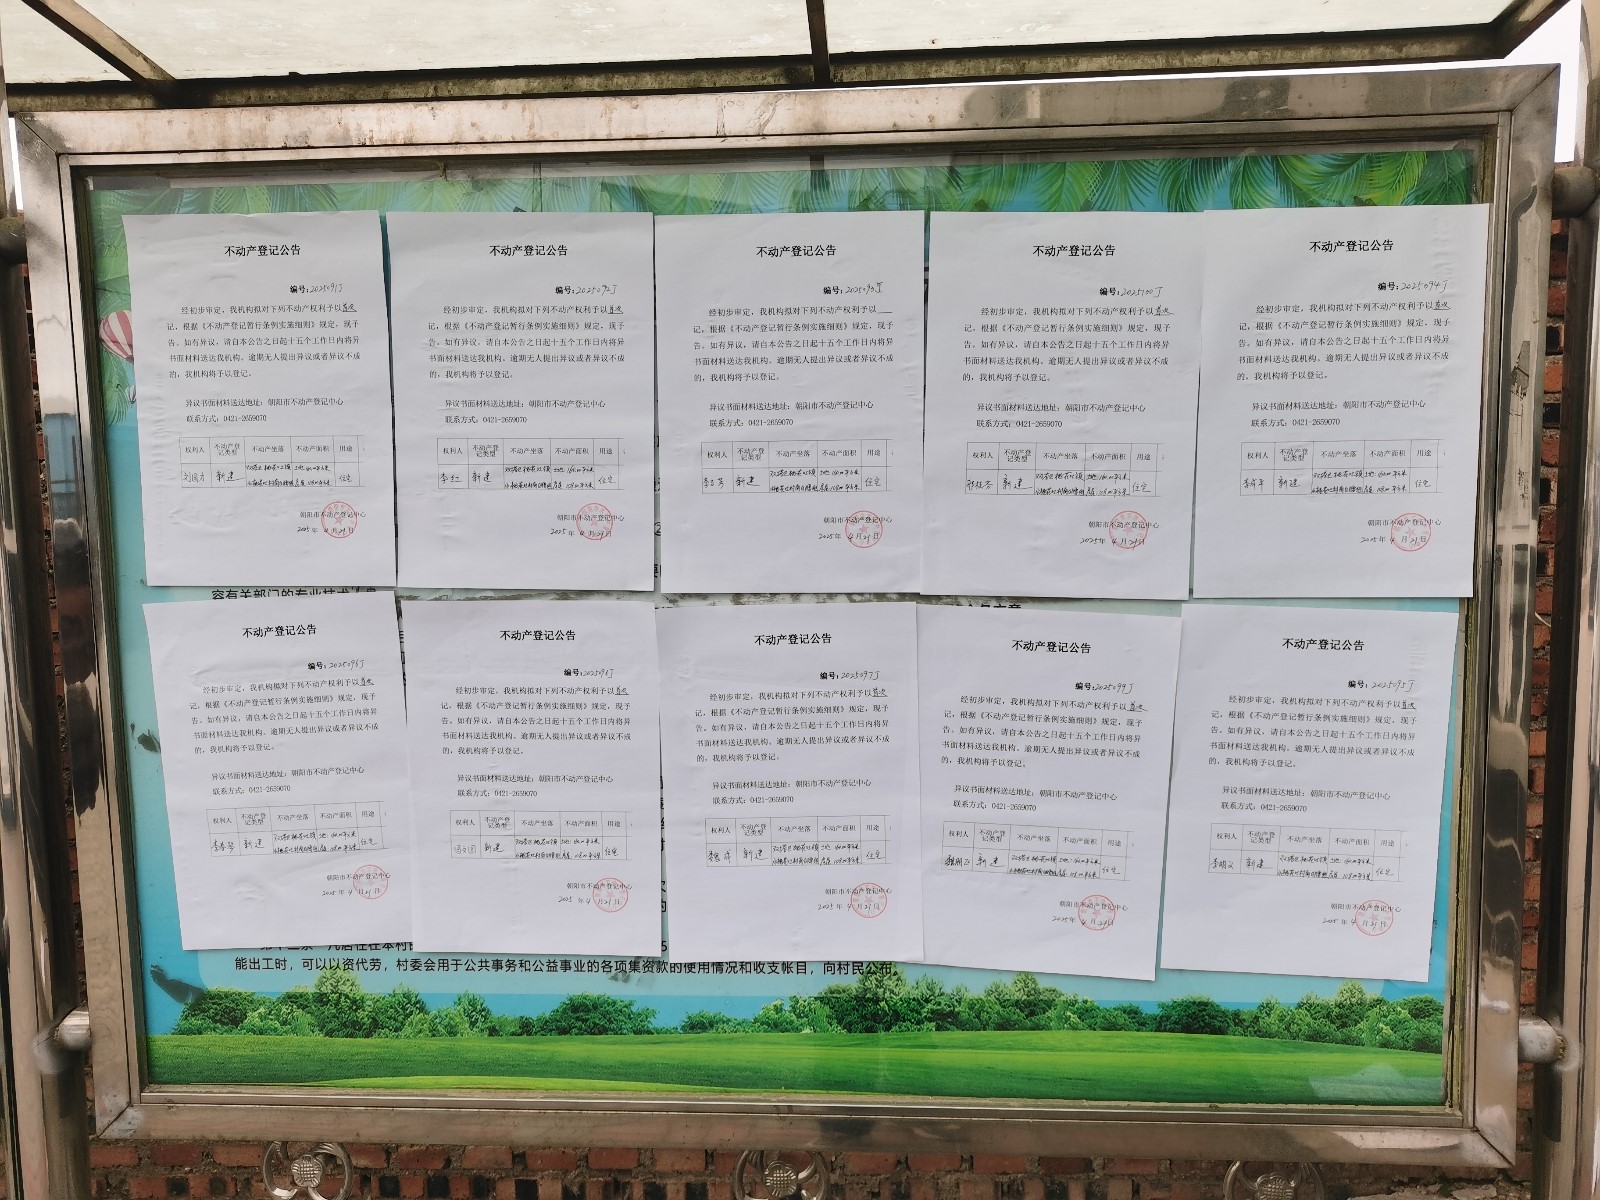 不动产登记公告
编号:2025091J
经初步审定，我机构拟对下列不动产权利予以首次
记，根据《不动产登记暂行条例实施细则》规定，现予
告。如有异议，请自本公告之日起十五个工作日内将异
书面材料送达我机构。逾期无人提出异议或者异议不成
的，我机构将予以登记。
异议书面材料送达地址：朝阳市不动产登记中心
联系方式：0421-2659070
权利人 不动产登记类型 不动产坐落 不动产面积 用途
新建 住宅
朝阳市不动产登记中心
2025年4月29日
不动产登记公告
编号:2025092J
经初步审定，我机构拟对下列不动产权利予以首次
记，根据《不动产登记暂行条例实施细则》规定，现予
告。如有异议，请自本公告之日起十五个工作日内将异
书面材料送达我机构。逾期无人提出异议或者异议不成
的，我机构将予以登记。
异议书面材料送达地址：朝阳市不动产登记中心
联系方式：0421-2659070
权利人 不动产登记类型 不动产坐落 不动产面积 用途
李红 新建 住宅
朝阳市不动产登记中心
2025年4月29日
不动产登记公告
编号:2025093J
经初步审定，我机构拟对下列不动产权利予以
记，根据《不动产登记暂行条例实施细则》规定，现予
告。如有异议，请自本公告之日起十五个工作日内将异
书面材料送达我机构。逾期无人提出异议或者异议不成
的，我机构将予以登记。
异议书面材料送达地址：朝阳市不动产登记中心
联系方式：0421-2659070
权利人 不动产登记类型 不动产坐落 不动产面积 用途
新建 住宅
朝阳市不动产登记中心
2025年4月29日
不动产登记公告
编号:2025100J
经初步审定，我机构拟对下列不动产权利予以首次
记，根据《不动产登记暂行条例实施细则》规定，现予
告。如有异议，请自本公告之日起十五个工作日内将异
书面材料送达我机构。逾期无人提出异议或者异议不成
的，我机构将予以登记。
异议书面材料送达地址：朝阳市不动产登记中心
联系方式：0421-2659070
权利人 不动产登记类型 不动产坐落 不动产面积 用途
新建 住宅
朝阳市不动产登记中心
2025年4月29日
不动产登记公告
编号:2025094J
经初步审定，我机构拟对下列不动产权利予以首次
记，根据《不动产登记暂行条例实施细则》规定，现予
告。如有异议，请自本公告之日起十五个工作日内将异
书面材料送达我机构。逾期无人提出异议或者异议不成
的，我机构将予以登记。
异议书面材料送达地址：朝阳市不动产登记中心
联系方式：0421-2659070
权利人 不动产登记类型 不动产坐落 不动产面积 用途
新建 住宅
朝阳市不动产登记中心
2025年4月29日
容有关部门的专业技术
不动产登记公告
编号:2025096J
经初步审定，我机构拟对下列不动产权利予以首次
记，根据《不动产登记暂行条例实施细则》规定，现予
告。如有异议，请自本公告之日起十五个工作日内将异
书面材料送达我机构。逾期无人提出异议或者异议不成
的，我机构将予以登记。
异议书面材料送达地址：朝阳市不动产登记中心
联系方式：0421-2659070
权利人 不动产登记类型 不动产坐落 不动产面积 用途
新建 住宅
朝阳市不动产登记中心
2025年4月29日
不动产登记公告
经初步审定，我机构拟对下列不动产权利予以首次
记，根据《不动产登记暂行条例实施细则》规定，现予
告。如有异议，请自本公告之日起十五个工作日内将异
书面材料送达我机构。逾期无人提出异议或者异议不成
的，我机构将予以登记。
异议书面材料送达地址：朝阳市不动产登记中心
联系方式：0421-2659070
权利人 不动产登记类型 不动产坐落 不动产面积 用途
新建 住宅
朝阳市不动产登记中心
2025年4月29日
不动产登记公告
编号:2025097J
经初步审定，我机构拟对下列不动产权利予以首次
记，根据《不动产登记暂行条例实施细则》规定，现予
告。如有异议，请自本公告之日起十五个工作日内将异
书面材料送达我机构。逾期无人提出异议或者异议不成
的，我机构将予以登记。
异议书面材料送达地址：朝阳市不动产登记中心
联系方式：0421-2659070
权利人 不动产登记类型 不动产坐落 不动产面积 用途
新建 住宅
朝阳市不动产登记中心
2025年4月29日
不动产登记公告
编号:2025099J
经初步审定，我机构拟对下列不动产权利予以首次
记，根据《不动产登记暂行条例实施细则》规定，现予
告。如有异议，请自本公告之日起十五个工作日内将异
书面材料送达我机构。逾期无人提出异议或者异议不成
的，我机构将予以登记。
异议书面材料送达地址：朝阳市不动产登记中心
联系方式：0421-2659070
权利人 不动产登记类型 不动产坐落 不动产面积 用途
新建 住宅
朝阳市不动产登记中心
2025年4月29日
不动产登记公告
编号:2025095J
经初步审定，我机构拟对下列不动产权利予以首次
记，根据《不动产登记暂行条例实施细则》规定，现予
告。如有异议，请自本公告之日起十五个工作日内将异
书面材料送达我机构。逾期无人提出异议或者异议不成
的，我机构将予以登记。
异议书面材料送达地址：朝阳市不动产登记中心
联系方式：0421-2659070
权利人 不动产登记类型 不动产坐落 不动产面积 用途
李明义 新建 住宅
朝阳市不动产登记中心
2025年4月29日
能出工时，可以以资代劳，村委会用于公共事务和公益事业的各项集资款的使用情况和收支帐目，向村民公布。